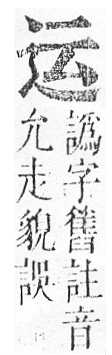 运
譌字舊註音
允走貌誤